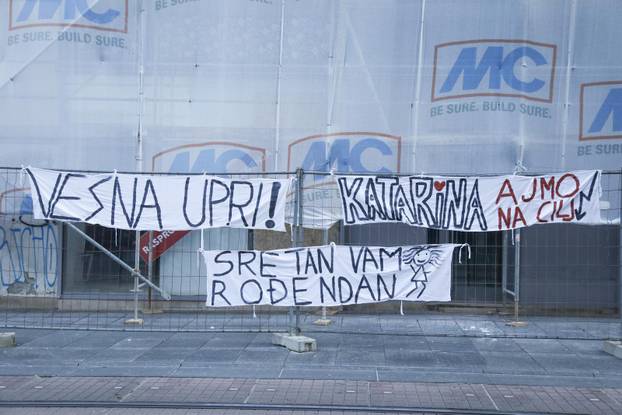 MC
BE SURE. BUILD SURE.
MC
BE SURE. BUILD SURE.
MC
MC
MC
VESNA UPRI!
KATARINA
AJMO
NA CILJ
SRETAN VAM
ROĐENDAN